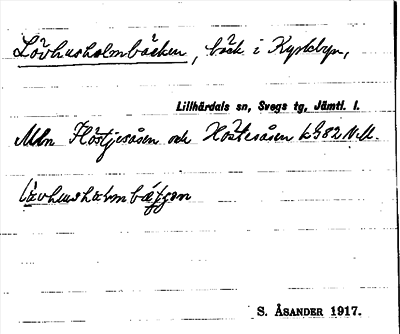 Lövhusholmbäcken, bäck i Kyrkbyn,
Lillhärdals sn, Svegs tg, Jämtl. l.
Mln Höstjesåsen och Höstesåsen k 982 N.M.
lövhushω̨lmbät̨jen
S. ÅSANDER 1917.